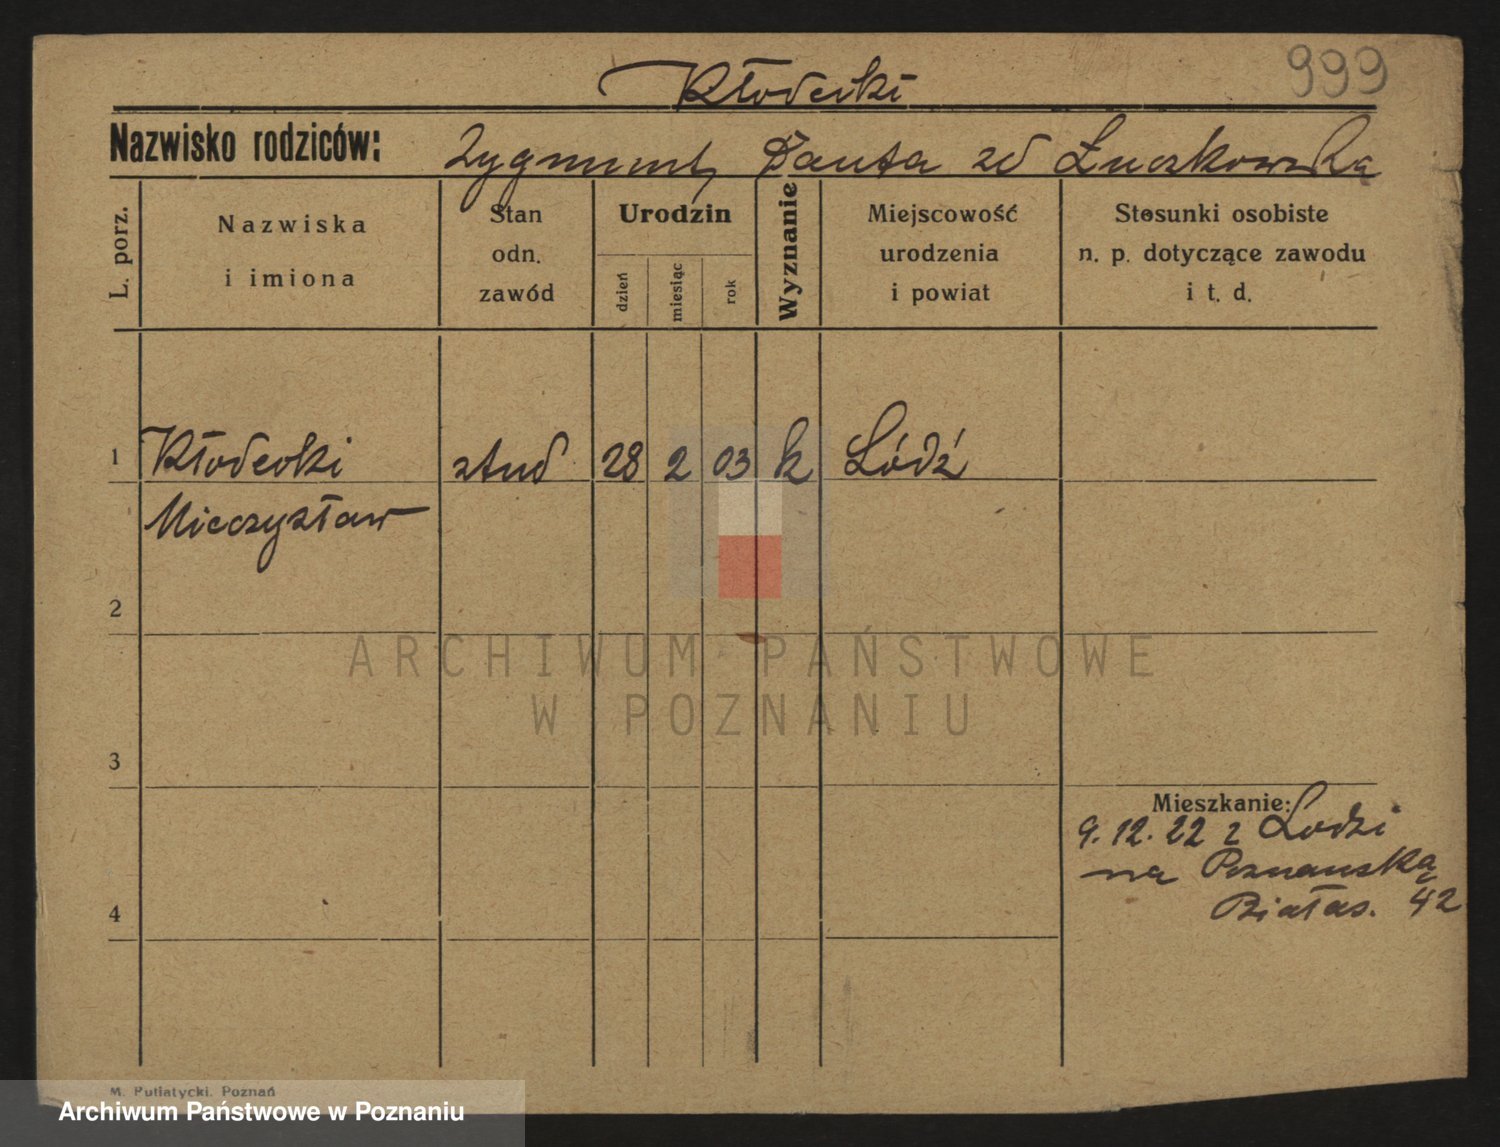 999
Kłodecki
Nazwisko rodziców:
Zygmunt, Danta zd Łuczkowska
L. porz.
Nazwiska
i imiona
Stan
odn.
zawód
Urodzin
dzień
miesiąc
rok
Wyznanie
Miejscowość
urodzenia
i powiat
Stosunki osobiste
n. p. dotyczące zawodu
i t. d.
1 Kłodecki stud 28 2 03 k Łódź
Mieczysław
2
ARCHIWUM PAŃSTWOWE
W POZNANIU
3
Mieszkanie:
9.12.22 z Łodzi
na Poznańską
Białas. 42
4
M. Putiatycki, Poznań
Archiwum Państwowe w Poznaniu